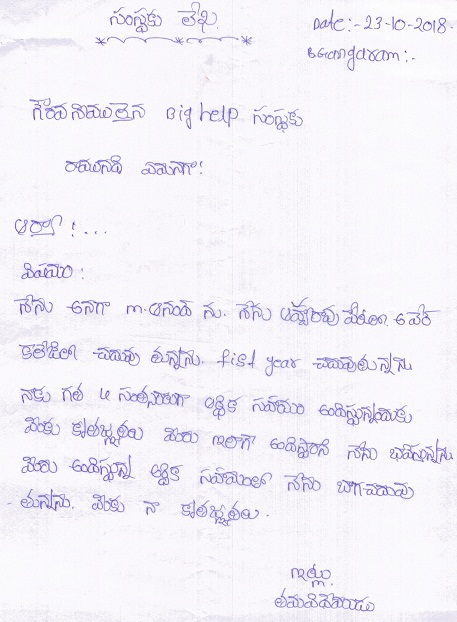 సంస్థకు లేఖ
Date:- 23-10-2018.
B Gangaram:-
గౌరవనీయులైన Big help సంస్థకు
రాయునది ఏమనగా!
ఆర్యా!...
విషయం:
నేను అనగా m. ఆనంద్ ను. నేను
కాలేజిలో చదువు తున్నాను. first year చదువుతున్నాను
నాకు గత 4 సంత్సరాలుగా ఆర్థిక సహాయం అందిస్తున్నందుకు
మీకు కృతజ్ఞతలు మీరు ఇలాగే అందిస్తారని నేను భావిస్తున్నాను
మీరు అందిస్తున్న ఆర్థిక సహాయంతో నేను బాగాచదువు
తున్నాను. మీకు నా కృతజ్ఞతలు.
ఇట్లు.
తమవిధేయుడు